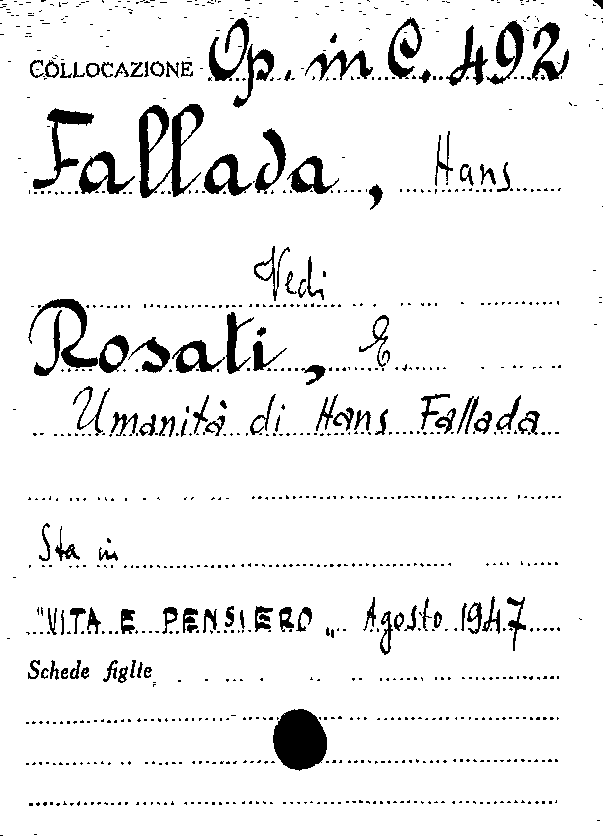 COLLOCAZIONE Op. in C. 492
Fallada, Hans
Vedi
Rosati, E.
Umanità di Hans Fallada
Sta in
"VITA E PENSIERO„ Agosto 1947
Schede figlie